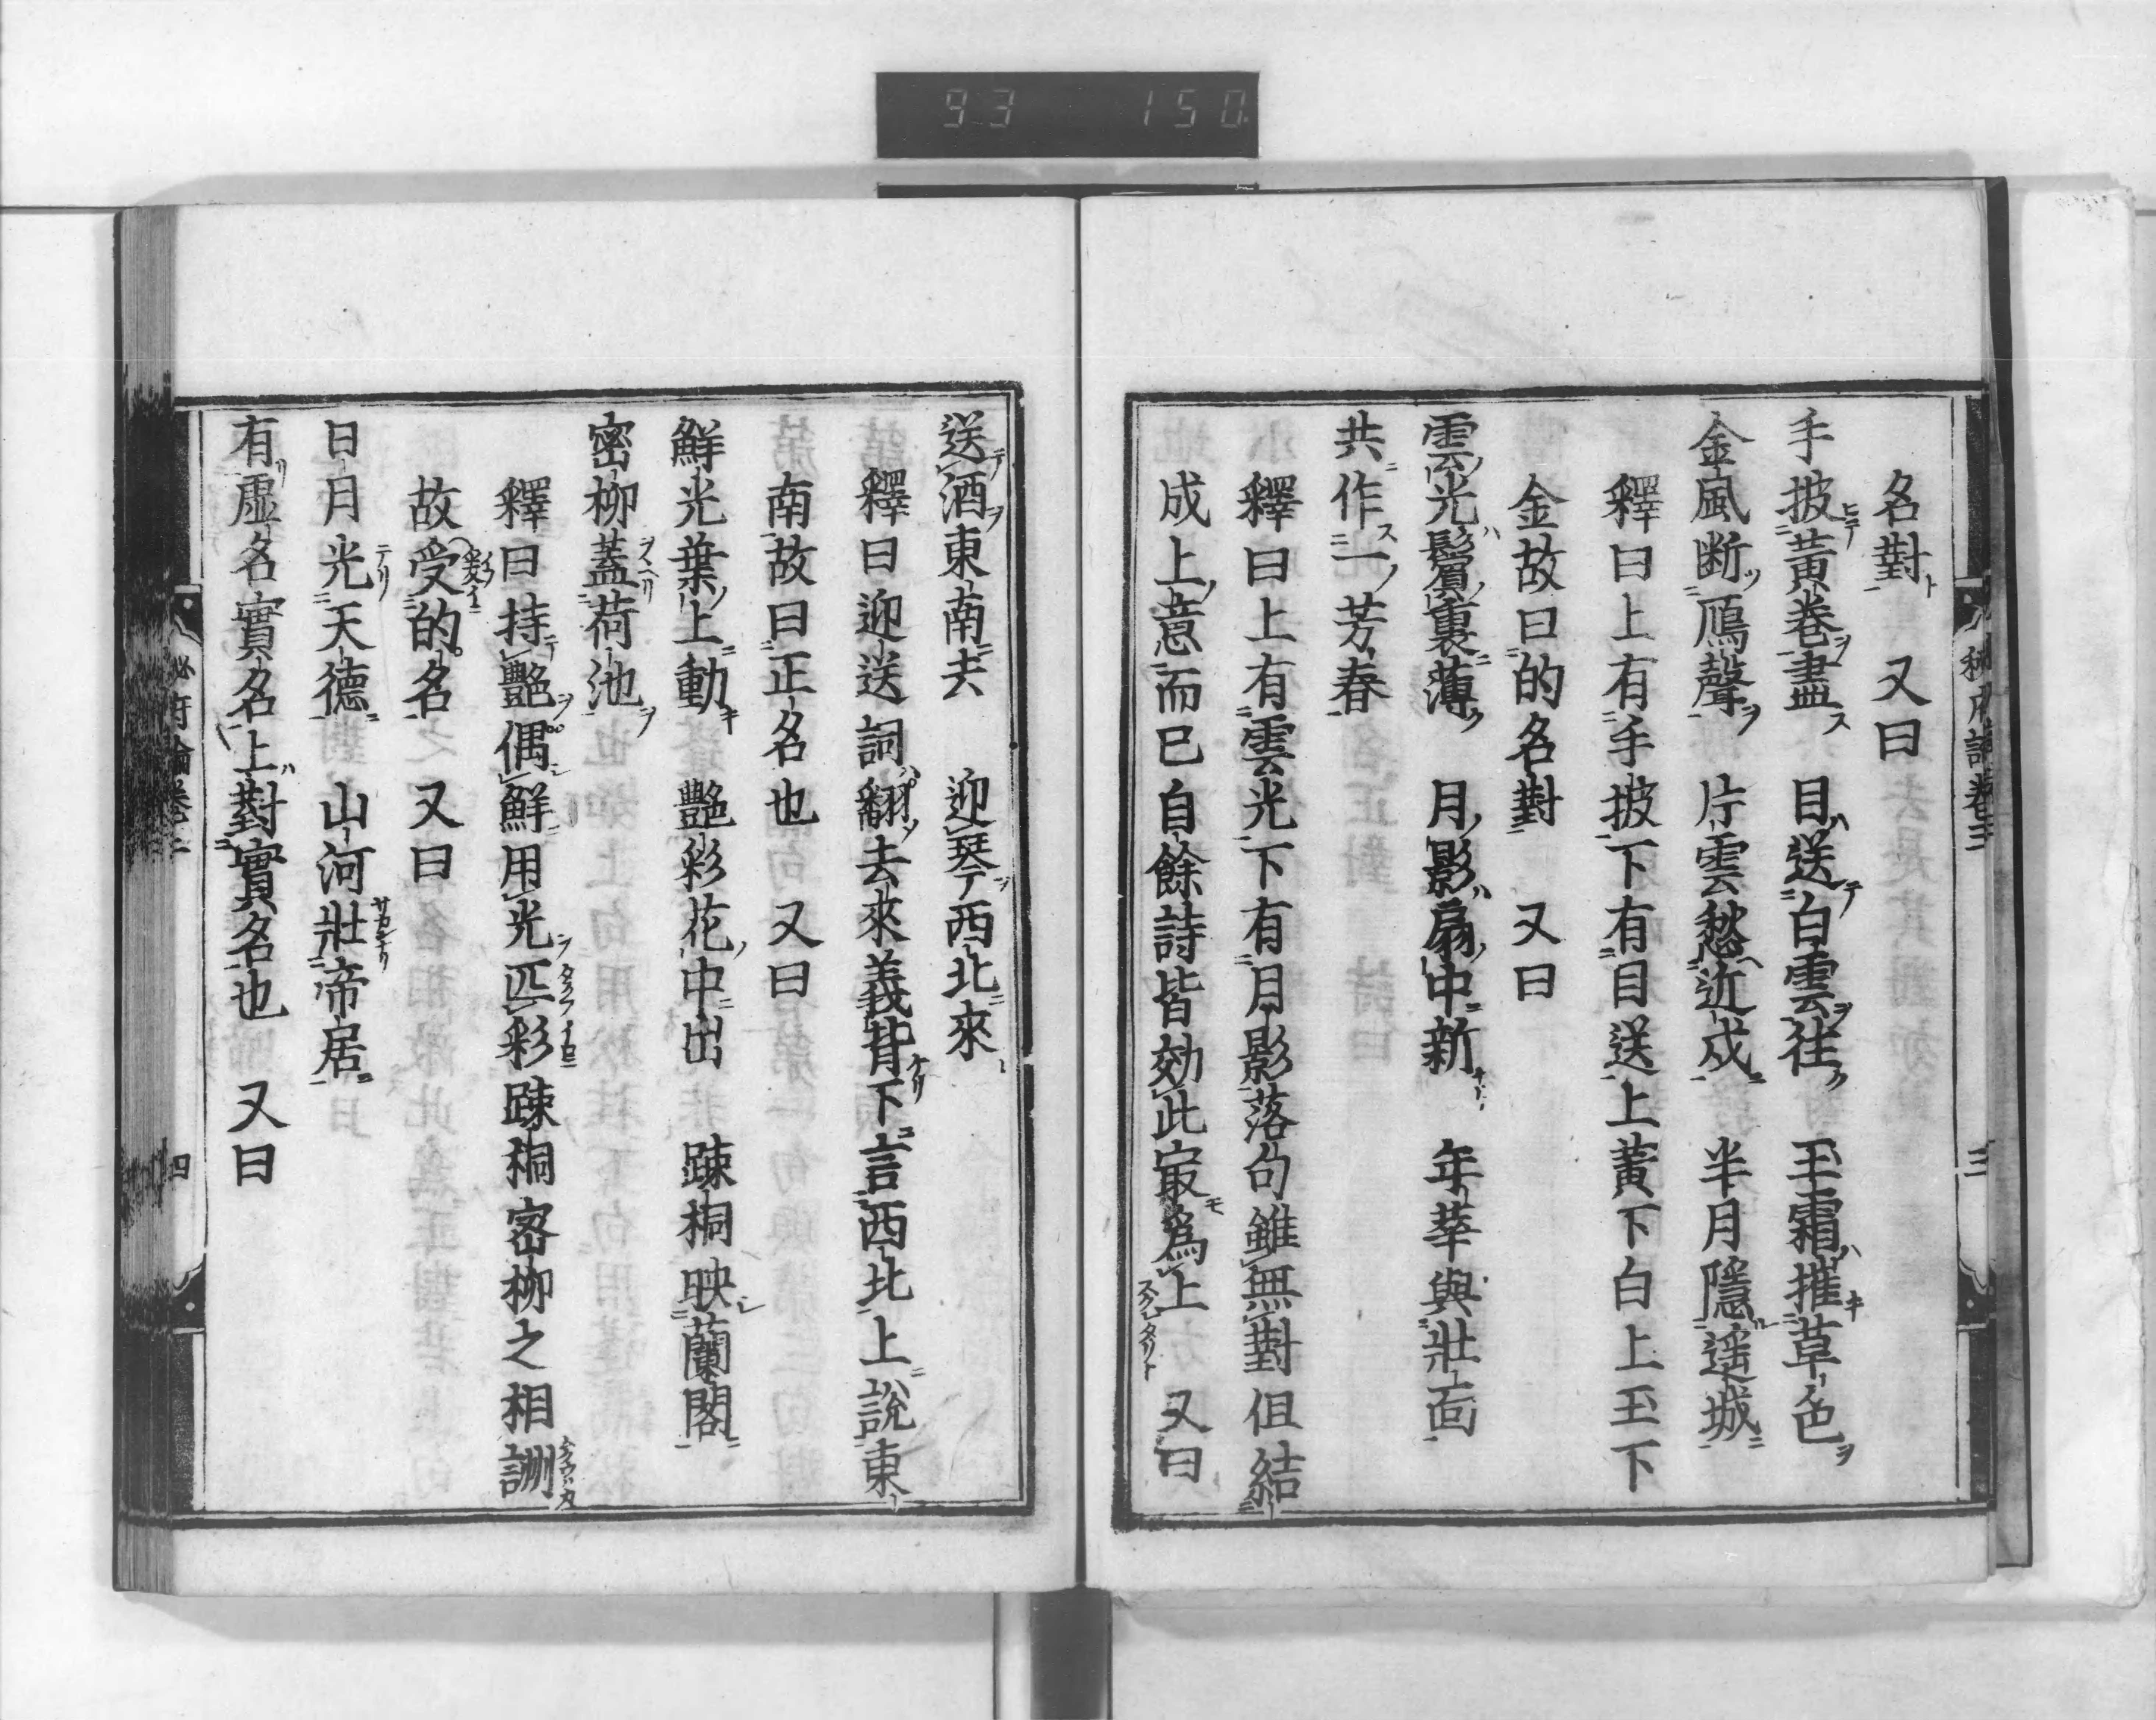 93 150
名對 又曰
手披黃卷盡 目送白雲往 玉霜摧草色
金風断鴈聲 片雲愁近戍 半月隱遥城
釋曰上有手披下有目送上黃下白上玉下
金故曰的名對 又曰
雲光鬢裏薄 月影扇中新 年華與壯面
共作一芳春
釋曰上有雲光下有月影落句雖無對但結
成上意而已自餘詩皆効此㝡爲上 又曰
送酒東南去 迎琴西北來
釋曰迎送詞翻去來義背下言西北上說東
南故曰正名也 又曰
鮮光葉上動 艶彩花中出 踈桐映蘭閣
密柳蓋荷池
釋曰持艶偶鮮用光匹彩踈桐密柳之相詶
故受的名 又曰
日月光天德 山河壯帝居
有虛名實名上對實名也 又曰